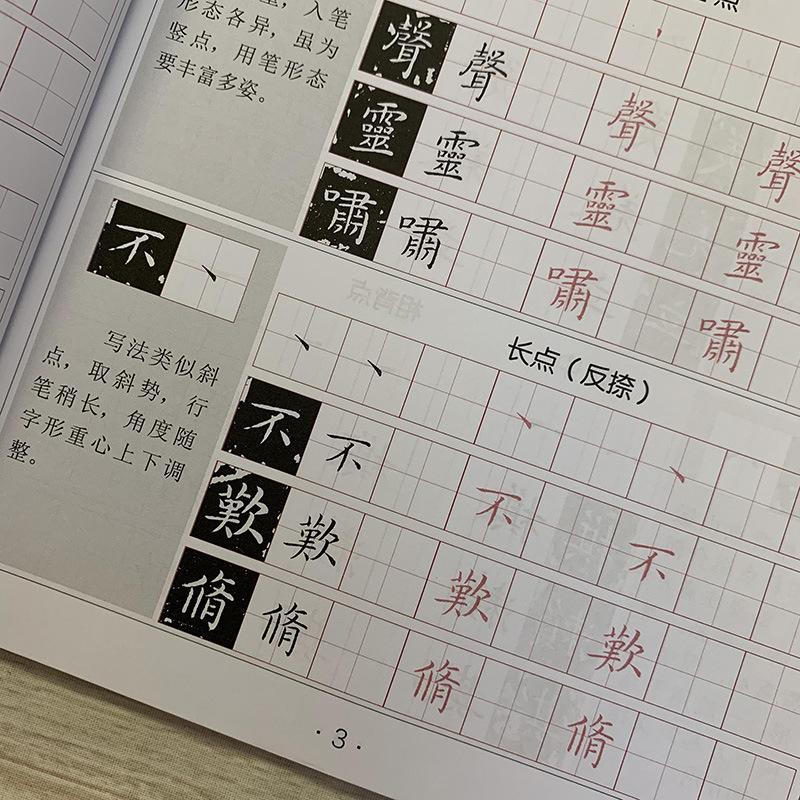 点
，入笔
形态各异，虽为
竖点，用笔形态
要丰富多姿。
聲 聲 聲 聲
靈 靈 靈 靈
嘯 嘯 嘯 嘯
不 丶
写法类似斜
点，取斜势，行
笔稍长，角度随
字形重心上下调
整。
长点（反捺）
丶 丶 丶 丶
不 不 不 不
歎 歎 歎 歎
脩 脩 脩 脩
·3·